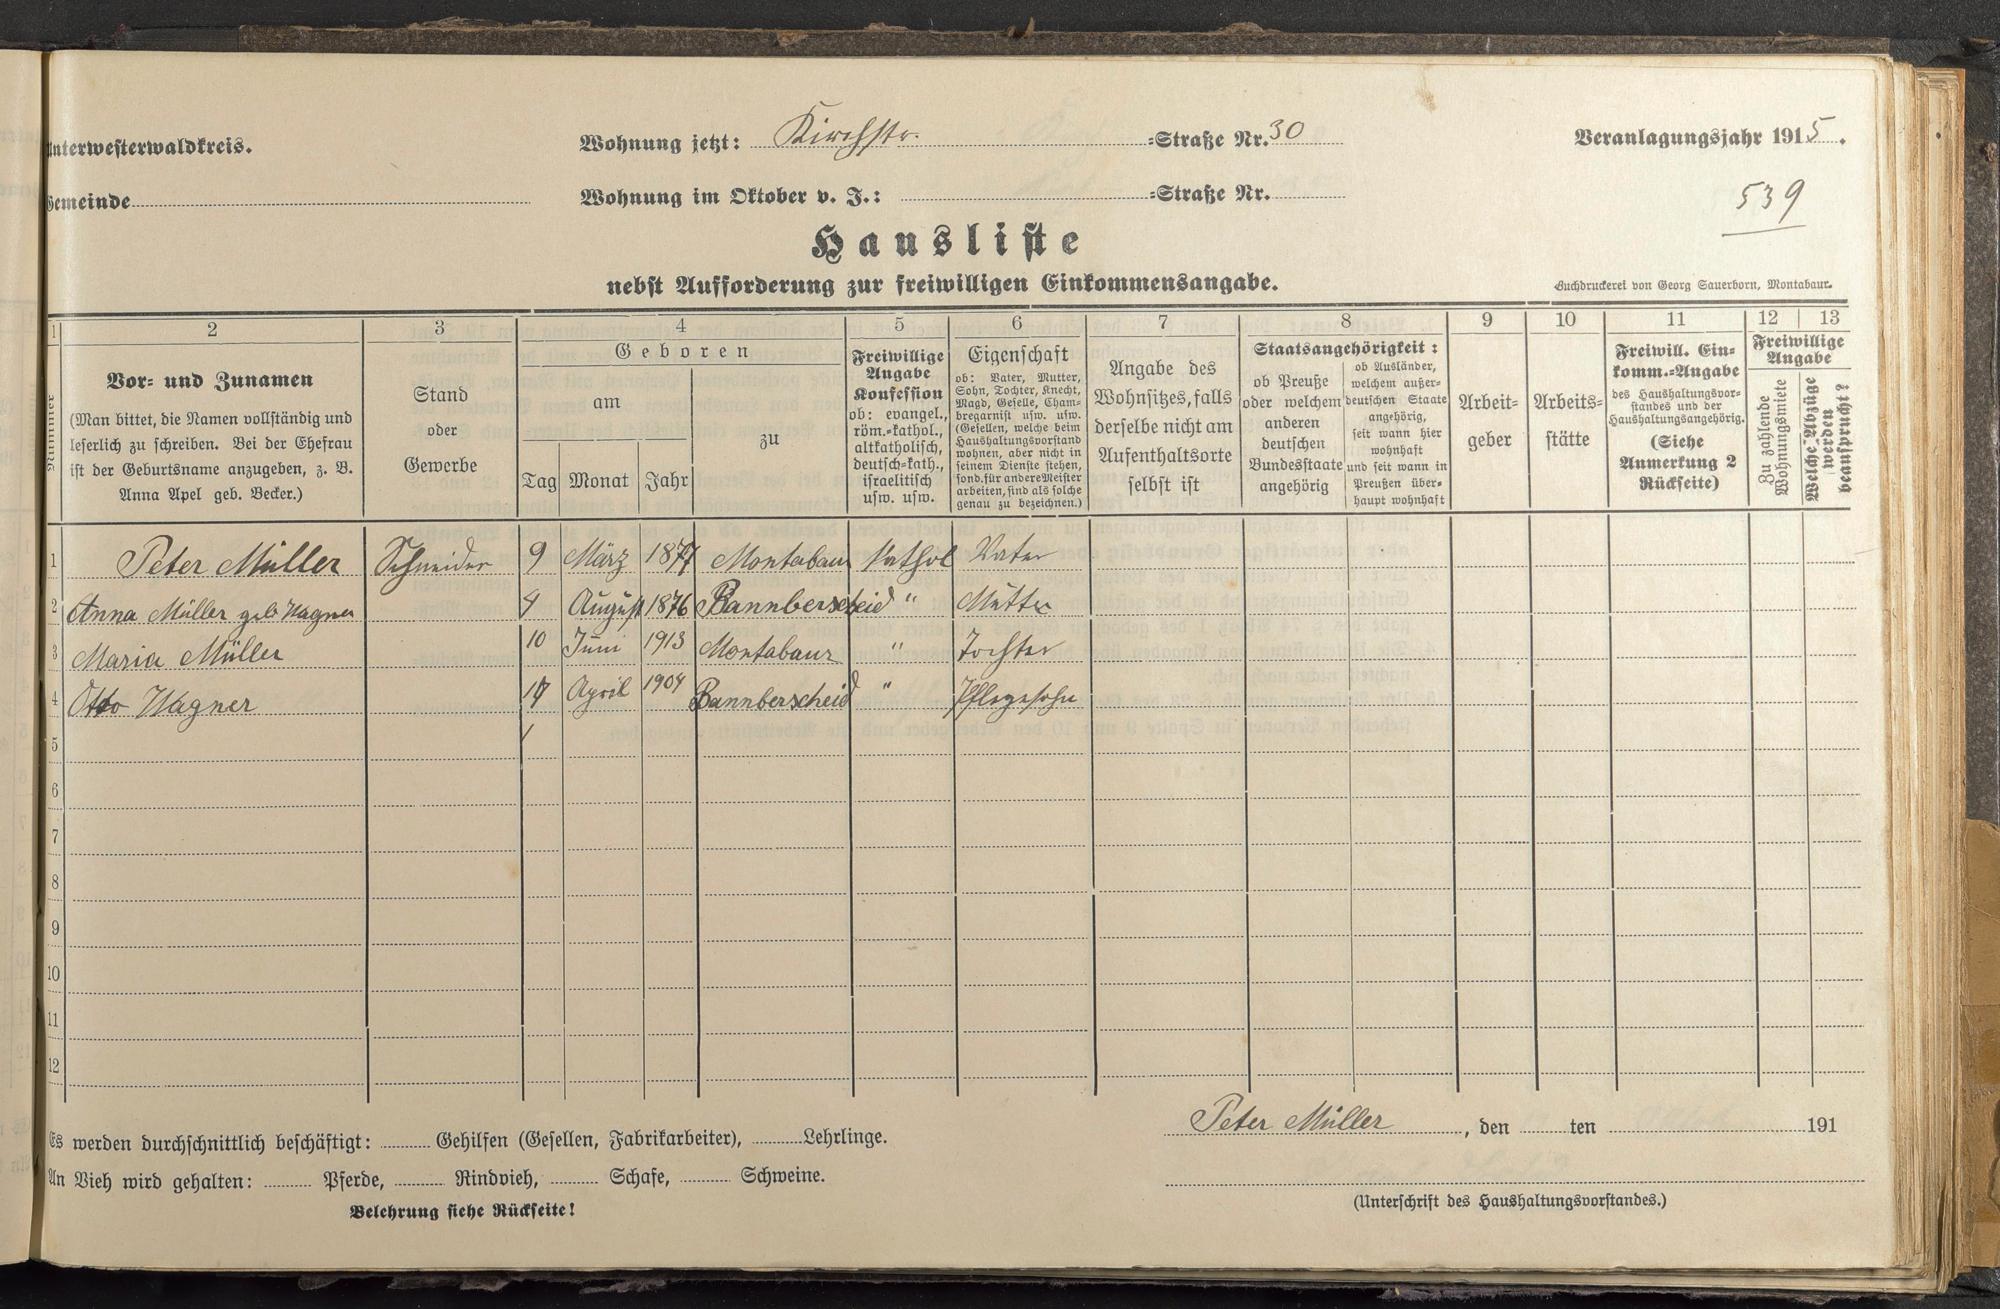 Unterwesterwaldkreis.
Wohnung jetzt: Kirchstr. =Straße Nr. 30
Veranlagungsjahr 1915.
Gemeinde
Wohnung im Oktober v. J.: =Straße Nr.
539
Hausliste
nebst Aufforderung zur freiwilligen Einkommensangabe.
Buchdruckerei von Georg Sauerborn, Montabaur.
1 2 3 4 5 6 7 8 9 10 11 12 13
Nummer
Vor- und Zunamen
(Man bittet, die Namen vollständig und
leserlich zu schreiben. Bei der Ehefrau
ist der Geburtsname anzugeben, z. B.
Anna Apel geb. Becker.)
Stand
oder
Gewerbe
Geboren
am
Tag Monat Jahr
zu
Freiwillige
Angabe
Konfession
ob: evangel.,
röm.=kathol.,
altkatholisch,
deutsch=kath.,
israelitisch
usw. usw.
Eigenschaft
ob: Vater, Mutter,
Sohn, Tochter, Knecht,
Magd, Geselle, Cham-
bregarnist usw. usw.
(Gesellen, welche beim
Haushaltungsvorstand
wohnen, aber nicht in
seinem Dienste stehen,
sond. für andere Meister
arbeiten, sind als solche
genau zu bezeichnen.)
Angabe des
Wohnsitzes, falls
derselbe nicht am
Aufenthaltsorte
selbst ist
Staatsangehörigkeit:
ob Preuße
oder welchem
anderen
deutschen
Bundesstaate
angehörig
ob Ausländer,
welchem außer=
deutschen Staate
angehörig,
seit wann hier
wohnhaft
und seit wann in
Preußen über=
haupt wohnhaft
Arbeit=
geber
Arbeits=
stätte
Freiwill. Ein=
komm.=Angabe
des Haushaltungsvor-
standes und der
Haushaltungsangehörig.
(Siehe
Anmerkung 2
Rückseite)
Freiwillige
Angabe
Zu zahlende
Wohnungsmiete
Welche Abzüge
werden
beansprucht?
1 Peter Müller Schneider 9 März 1877 Montabaur Kathol Vater
2 Anna Müller geb Wagner 4 August 1876 Bannberscheid " Mutter
3 Maria Müller 10 Juni 1913 Montabaur " Tochter
4 Otto Wagner 17 April 1904 Bannberscheid " Pflegesohn
5
6
7
8
9
10
11
12
Es werden durchschnittlich beschäftigt: Gehilfen (Gesellen, Fabrikarbeiter), Lehrlinge.
Peter Müller, den ten 191
An Vieh wird gehalten: Pferde, Rindvieh, Schafe, Schweine.
(Unterschrift des Haushaltungsvorstandes.)
Belehrung siehe Rückseite!